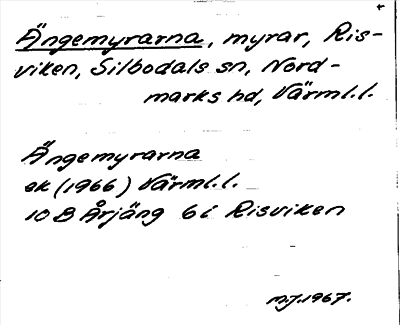 Ängemyrarna, myrar, Ris-
viken, Silbodals sn, Nord-
marks hd, Värml.l.
Ängemyrarna
ek (1966) Värml.l.
10 B Årjäng 6 i Risviken
M.J. 1967.